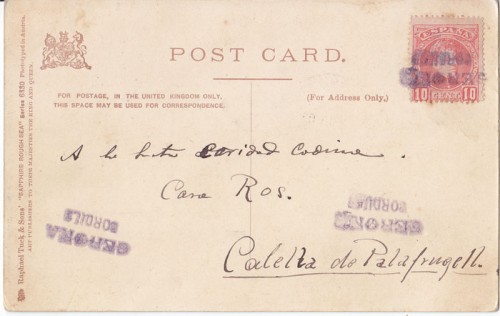 POST CARD.
FOR POSTAGE, IN THE UNITED KINGDOM ONLY,
THIS SPACE MAY BE USED FOR CORRESPONDENCE.
(For Address Only.)
ESPAÑA
10 10
A la Caridad Codina.
Casa Ros.
Calella de Palafrugell.
GERONA
BORDILS
GERONA
Raphael Tuck & Sons' "SAPPHIRE ROUGH SEA" Series
ART PUBLISHERS TO THEIR MAJESTIES THE KING AND QUEEN.